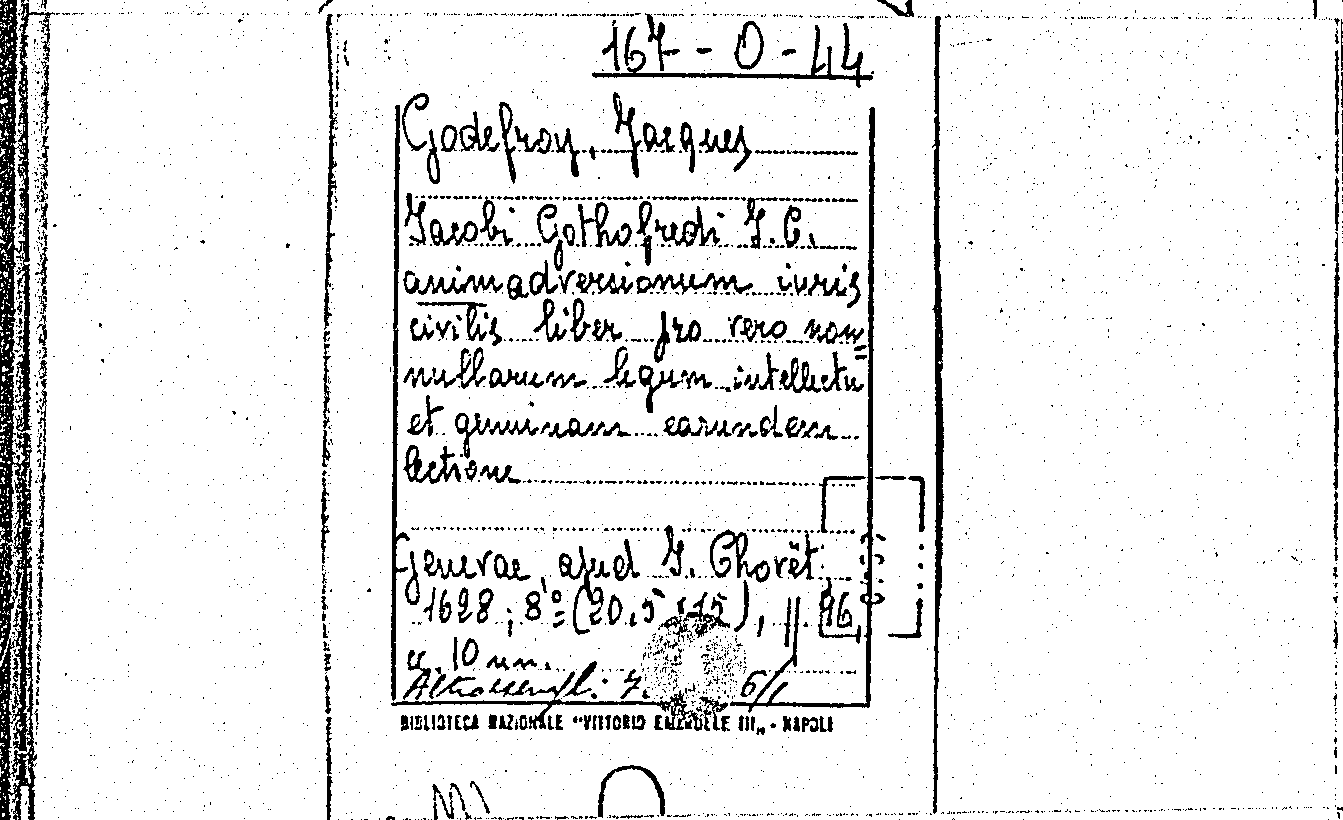 167-0-44
Godefroy, Jacques
Jacobi Gothofredi J. C.
animadversionum iuris
civilis liber pro vero non=
nullarum legum intellectu
et genuinam earundem
lectione
Genevae, apud J. Chovët
1628; 8º (20,5 x 15), 96,
c. 10 nn.
BIBLIOTECA NAZIONALE "VITTORIO EMANUELE III" - NAPOLI